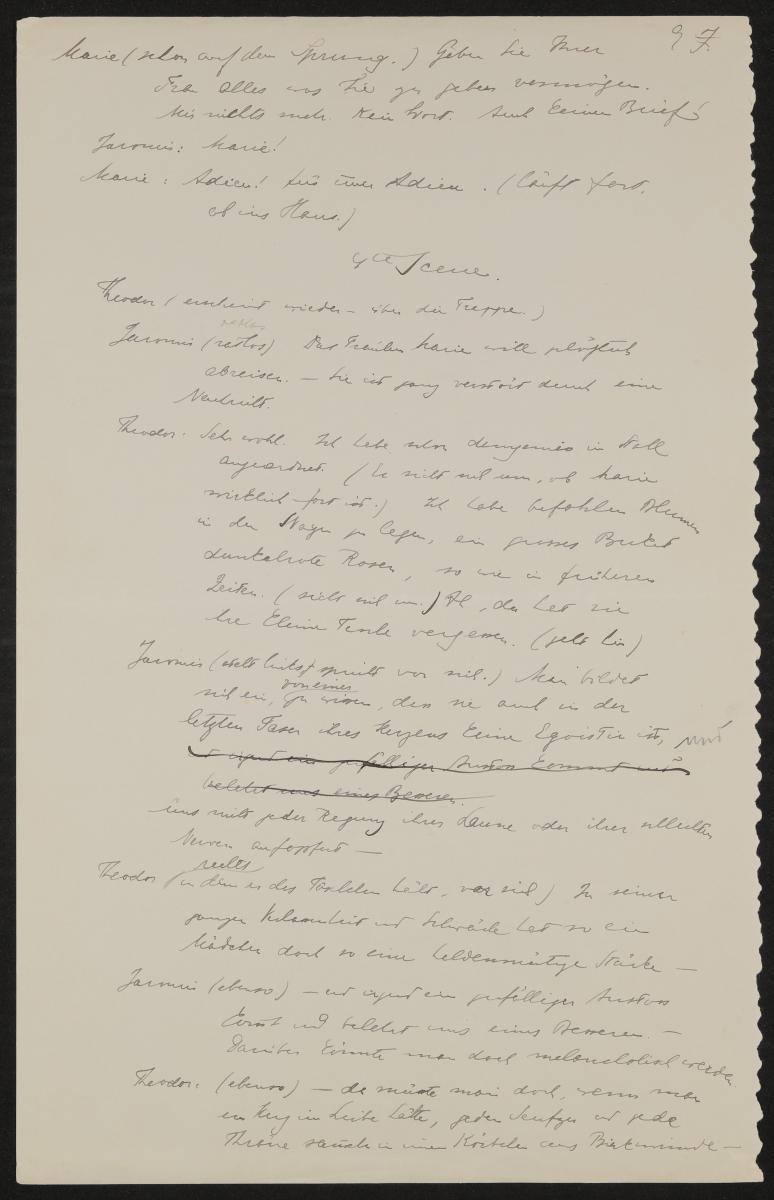 9 7.
Marie (schon auf dem Sprung.) Geben Sie Ihrer
Frau alles was Sie zu geben vermögen.
Mir nichts mehr. Kein Wort. Auch keinen Brief!
Jaromir: Marie!
Marie: Adieu! für immer Adieu. (läuft fort.
ab ins Haus.)
9te Scene.
Theodor (erscheint wieder – über die Treppe.)
Jaromir (ratlos) Das Fräulein Marie will plötzlich
abreisen. – Sie ist ganz verstört durch eine
Nachricht.
Theodor: Sehr wohl. Ich habe schon demgemäss im Stall
angeordnet. (Er sieht sich um, ob Marie
wirklich fort ist.) Ich habe befohlen Blumen
in den Wagen zu legen, ein grosses Buket
dunkelrote Rosen, so wie in früheren
Zeiten. (sieht sich um.) Ah, da hat sie
ihre kleine Tasche vergessen. (geht hin)
Jaromir (steht links, spricht vor sich.) Man bildet
sich ein, von einer zu wissen, dass sie auch in der
letzten Faser ihres Herzens keine Egoistin ist, und
und irgend ein zufälliger Anstoss kommt und
belehrt uns eines Besseren.
uns nicht jeder Regung ihrer Laune oder ihrer schlechten
Nerven aufopfert –
Theodor (rechts indem er das Täschchen hält, vor sich) In seiner
ganzen und Schwäche hat so ein
Mädchen doch so eine heldenmütige Stärke –
Jaromir (ebenso) – und irgend ein zufälliger Anstoss
kommt und belehrt uns eines Besseren. –
Darüber könnte man doch melancholisch werden.
Theodor: (ebenso) – da müsste man doch, wenn man
ein Herz im Leibe hätte, jeden Seufzer und jede
Thräne sammeln in einem Körbchen aus Birkenrinde –